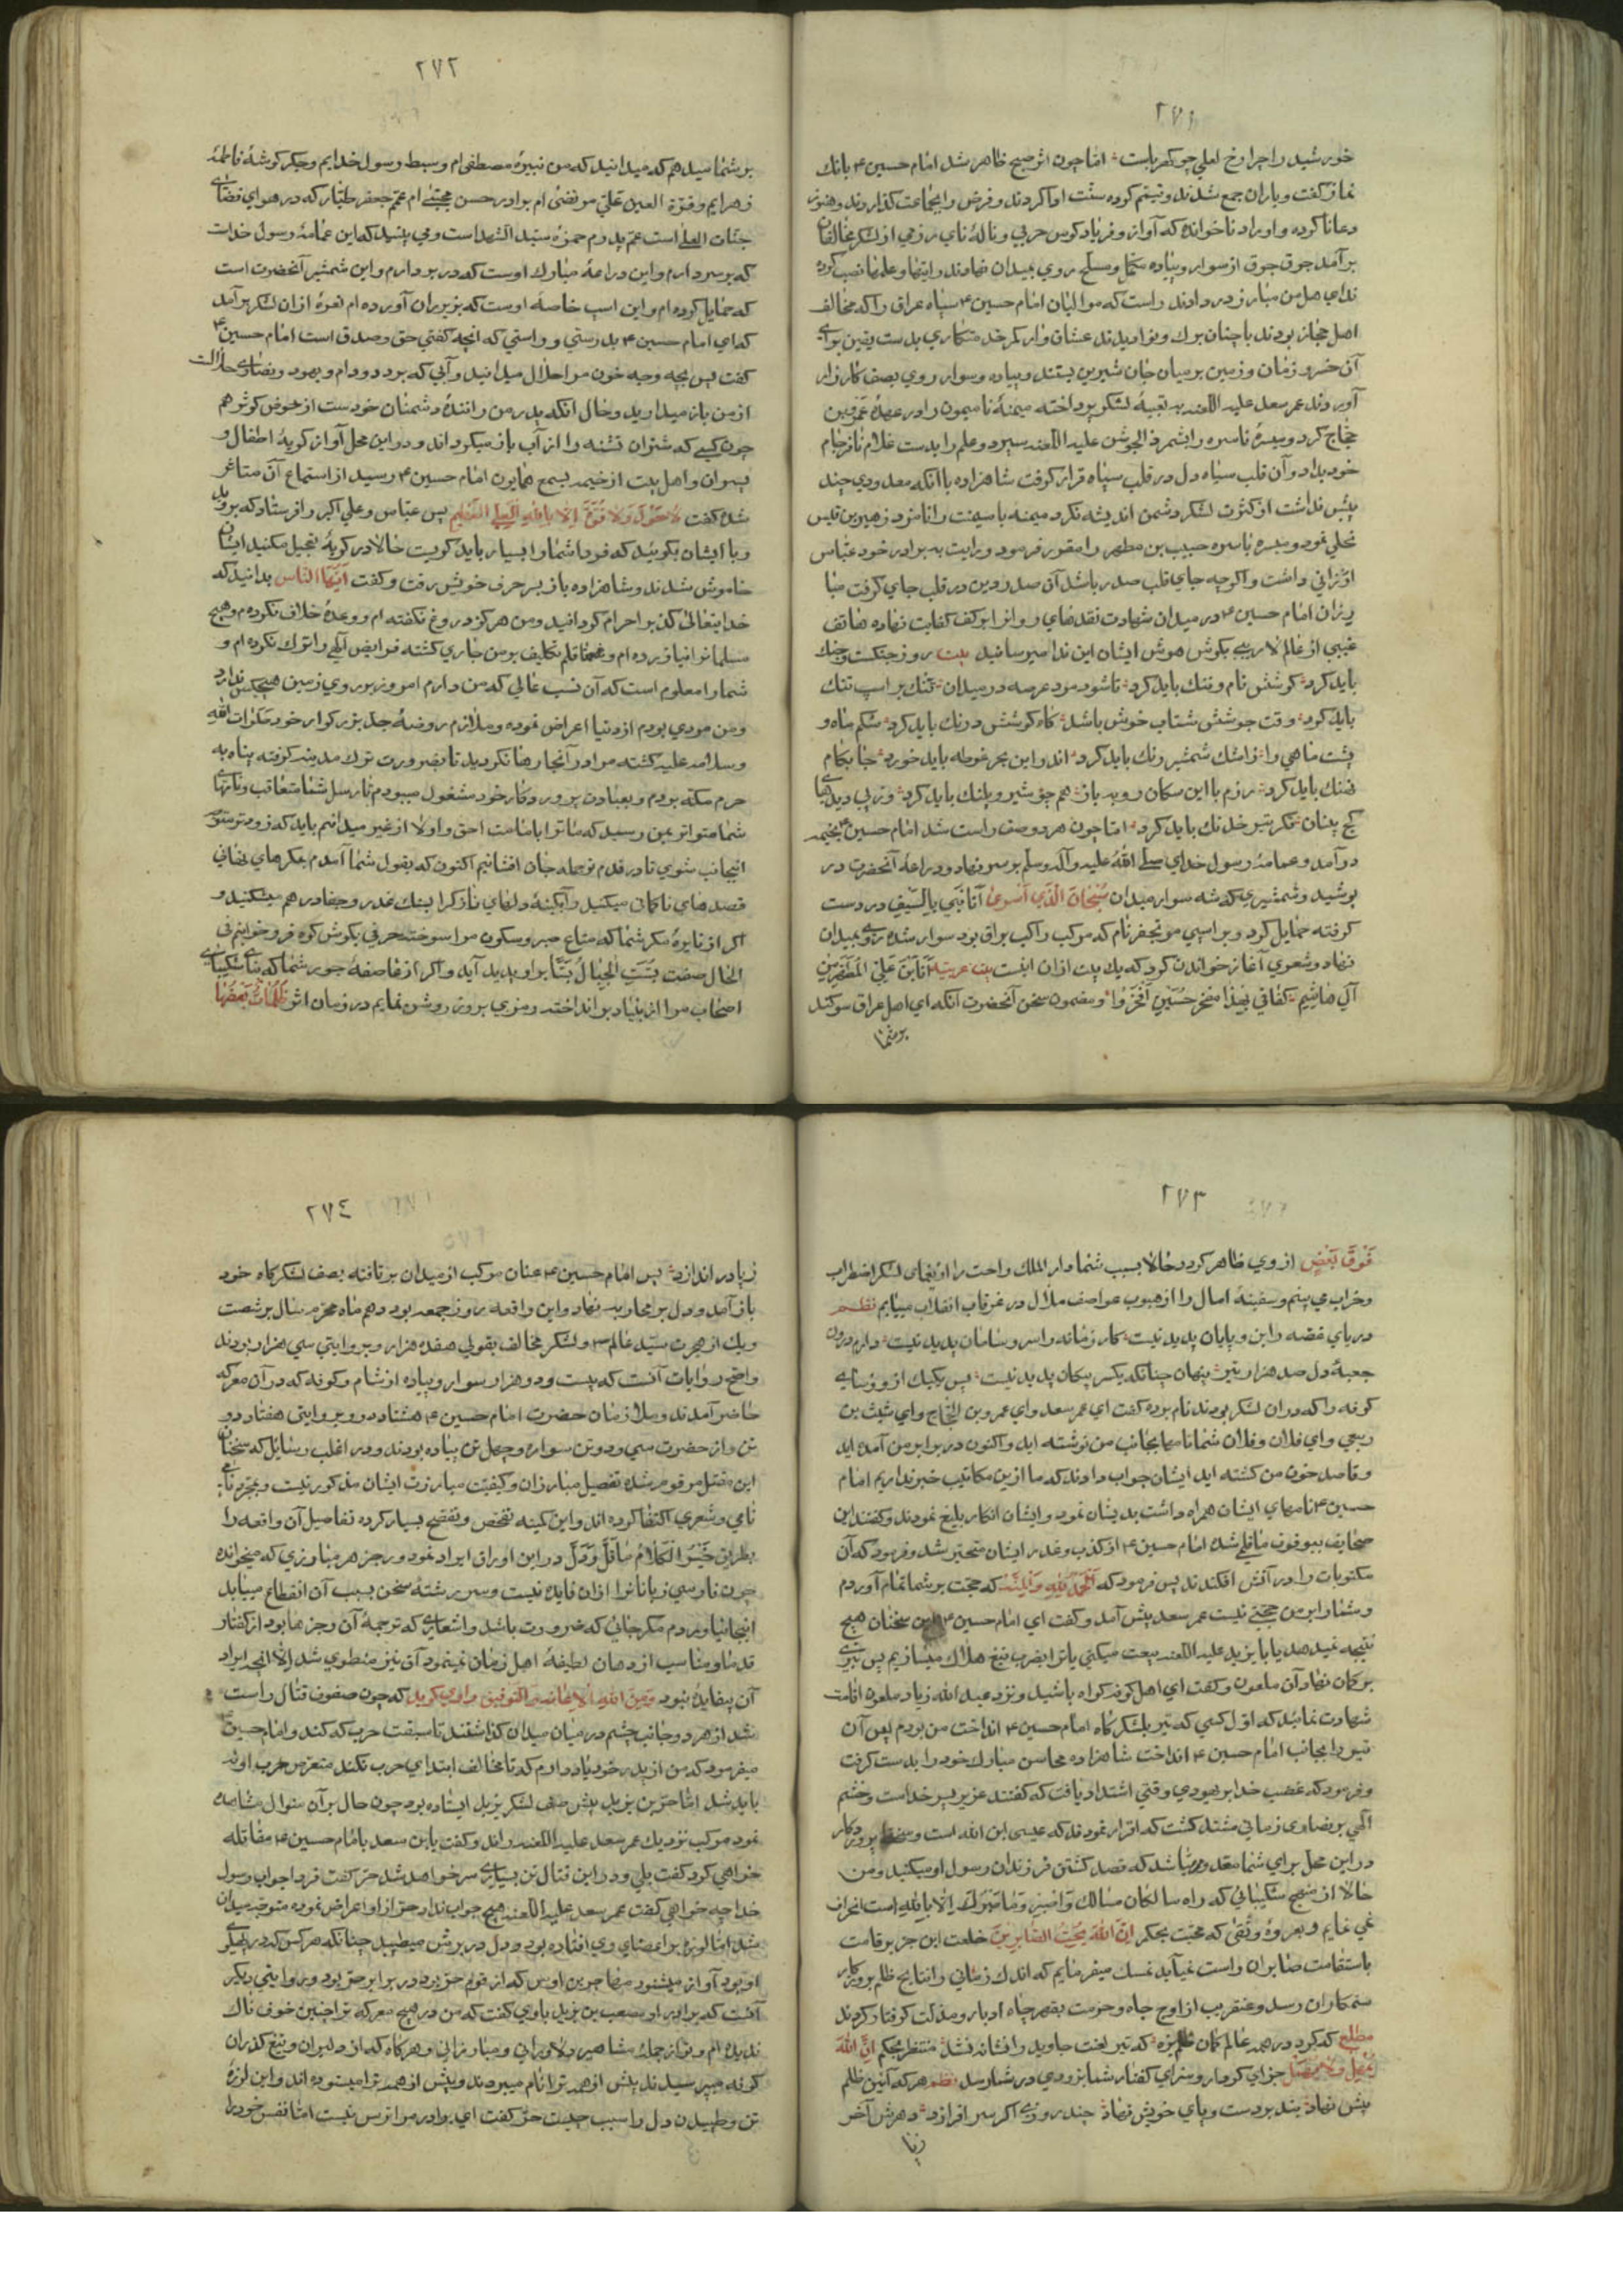 ٢٧١
خورشید را چراوخ لعلی چو کهرباست اما چون اثر صبح ظاهر شد امام حسین ۴ بانك
نماز کفت ویاران جمع شدند وتیمم کرده سنّت ادا کردند وفرض را بجماعت کذاردند وهنوز
دعا نا کرده واوراد نا خوانده که آواز وفریاد کوس حربی ونالهٔ نای رزمی از لشکر مخالفان
برآمد جوق جوق از سوار وپیاده مکمل ومسلح روی بمیدان نهادند ورایتها وعلمها نصب کرده
ندای هل من مبارز در دادند راست که موالیان امام حسین ۴ سپاه عراق را که مخالف
اهل حجاز بودند با چنان برك ونوا دیدند عشاق وار کمر خدمتکاری بدست یقین برای
آن خسرو زمان وزمین بر میان جان شیرین بستند وپیاده وسوار روی بصف کارزار
آوردند عمر سعد علیه اللعنه به تعبیهٔ لشکر پرداخته میمنهٔ نا میمون را در عهدهٔ عمرو بن
حجّاج کرد ومیسرهٔ ناسره را بشمر ذالجوشن علیه اللعنه سپرد وعلم را بدست غلام نافرجام
خود بداد وآن قلب سیاه دل در قلب سپاه قرار کرفت شاهزاده با آنکه معدودی چند
بیش نداشت از کثرت لشکر دشمن اندیشه نکرد میمنهٔ با میمنت را نامزد زهیر بن قیس
بجلی نمود ومیسرهٔ باسره حبیب بن مطهر را مقرر فرمود ورایت به برادر خود عباس
ارزانی داشت واکرچه جای قلب صدر باشد آن صدر دین در قلب جای کرفت مبا
رزان امام حسین ۴ در میدان شهادت نقدهای روانرا بر کف کفایت نهاده هاتف
غیبی از عالم لاریبی بکوش هوش ایشان این ندا میرسانید بیت روز جنکست وجنك
باید کرد کوشش نام وننك باید کرد تا شود مرد عرصه در میدان تنك بر اسپ تنك
باید کرد وقت جوشش شتاب خوش باشد کاه کوشش درنك باید کرد شکم ماه و
پشت ماهی را ز اشك شمشیر رنك باید کرد اندر این بحر غوطه باید خورد جا بکام
نهنك باید کرد رزم با این سکان روبه باز هم چو شیر وپلنك باید کرد وز پی دیدهای
کج بینان فکر تیر خدنك باید کرد اما چون هر دو صف راست شد امام حسین ۴ بخیمه
درآمد وعمامهٔ رسول خدای صلی الله علیه وآله وسلم بر سر نهاد ودراعهٔ آنحضرت در
پوشید وشمشیری که شه سوار میدان سُبْحَانَ الَّذِي أَسْرَى أنا نَبِي بِالسَّيْفِ در دست
کرفته حمایل کرد وبر اسپی مرتجز نام که مرکب راکب براق بود سوار شده روی بمیدان
نهاد وشعری آغاز خواندن کرد که یك بیت از ان اینست بیت عربیه أنا ابن علي الطهر من
آل هاشم کفاني بهذا مفخر حسين افخروا ومضمون سخن آنحضرت آنکه ای اهل عراق سوکند
بر شما
٢٧٢
بر شما میدهم که میدانید که من نبیرهٔ مصطفی ام وسبط رسول خدایم وجکر کوشهٔ فاطمهٔ
زهرایم وقرة العین علیّ مرتضی ام برادر حسن مجتبی ام عمم جعفر طیّار که در هوای فضای
جنّات العلی است عمّ پدرم حمزه سیّد الشهداست ومی بینید که این عمامهٔ رسول خداست
که بر سر دارم واین دراعهٔ مبارك اوست که در بر دارم واین شمشیر آنحضرت است
که حمایل کرده ام واین اسپ خاصهٔ اوست که بزیر ران آورده ام نعرهٔ از ان لشکر برآمد
که ای امام حسین ۴ بدرستی وراستی که انچه کفتی حق وصدق است امام حسین ۴
کفت پس بچه وجه خون مرا حلال میدانید وآبی که بر دد ودام ویهود ونصاری حلالست
از من باز میدارید وحال آنکه پدر من رانندهٔ دشمنان خودست از حوض کوثر هم
چون کسی که شتران تشنه را از آب باز میکرداند ودر این محل آواز کریهٔ اطفال و
نسوان واهل بیت از خیمه بسمع همایون امام حسین ۴ رسید از استماع آن متاثر
شده کفت لا حول ولا قوة الا بالله العلي العظيم پس عباس وعلی اکبر را فرستاد که بروید
وبا ایشان بکوئید که فردا شما را بسیار باید کریست حالا در کریه تعجیل مکنید ایشان
خاموش شدند وشاهزاده باز بسر حرف خویش رفت وکفت ایّها الناس بدانید که
خدایتعالی کذب را حرام کردانید ومن هرکز دروغ نکفته ام ووعدهٔ خلاف نکرده ام وهیچ
مسلمانرا نیازرده ام وتا قلم تکلیف بر من جاری کشته فرایض الهی را ترك نکرده ام و
شما را معلوم است که آن نسب عالی که من دارم امروز بر روی زمین هیچکس ندارد
ومن مردی بودم از دنیا اعراض نموده وملازم روضهٔ جد بزرکوار خود صلوات الله
وسلامه علیه کشته مرا در آنجا رها نکردید تا بضرورت ترك مدینه کرفته پناه به
حرم مکه بردم وبعبادت پروردکار خود مشغول میبودم تا رسل شما متعاقب ونامهای
شما متواتر بمن رسید که ما ترا بامامت احق واولا از غیر میدانیم باید که زود متوجه
اینجانب شوی تا در قدم تو جمله جان افشانیم اکنون که بقول شما آمدم بمکرهای نهانی
قصدهای ناکهانی میکنید وآبکینهٔ دلهای نازك را بسنك غدر وجفا در هم میشکنید و
اکر از نایرهٔ مکر شما که متاع صبر وسکون مرا سوخته حرفی بکوش کوه فرو خوانم فی
الحال صفت بُسَّتِ الْجِبَالُ بَسًّا بر او پدید آید واکر از قاصفهٔ جور شما که بنای شکیبای
اصحاب مرا از بنیاد برانداخته رمزی بر روز روشن نمایم در زمان اثر ظُلُمَاتٌ بَعْضُهَا
٢٧٣
فَوْقَ بَعْضٍ از وی ظاهر کردد وحالا بسبب شما دار الملك راحت را از یغمای لشکر اضطراب
وخراب می بینم وسفینهٔ امال را از هبوب عواصف ملال در غرقاب انقلاب مییابم نظم
دریای غصه را بن وپایان پدید نیست کار زمانه را سر وسامان پدید نیست دارم درون
جعبهٔ دل صد هزار تیر پنهان چنانکه یکسر پیکان پدید نیست پس یکیك از رؤسای
کوفه را که در ان لشکر بودند نام برده کفت ای عمر سعد وای عمرو بن الحجاج وای شبث بن
ربعی وای فلان وفلان شما نامها بجانب من نوشته اید واکنون در برابر من آمده اید
وقاصد خون من کشته اید ایشان جواب دادند که ما ازین مکاتیب خبر نداریم امام
حسین ۴ نامهای ایشان همراه داشت بدیشان نمود وایشان انکار بلیغ نمودند وکفتند این
صحایف بیوقوف ما قلمی شده امام حسین ۴ از کذب وغدر ایشان متحیّر شد وفرمود که آن
مکتوبات را در آتش افکندند پس فرمود که الحمد لله والمنّه که حجّت بر شما تمام آوردم
وشما را بر من حجّتی نیست عمر سعد پیش آمد وکفت ای امام حسین ۴ این سخنان هیچ
نتیجه نمیدهد یا با یزید علیه اللعنه بیعت میکنی یا ترا بضرب تیغ هلاك میسازیم پس تیری
بر کمان نهاد آن ملعون وکفت ای اهل کوفه کواه باشید ونزد عبد الله زیاد ملعون اقامت
شهادت نمائید که اوّل کسی که تیر بلشکرکاه امام حسین ۴ انداخت من بودم پس آن
تیر را بجانب امام حسین ۴ انداخت شاهزاده محاسن مبارك خود را بدست کرفت
وفرمود که غضب خدا بر یهودی وقتی اشتداد یافت که کفتند عزیر پسر خداست وخشم
الهی بر نصاری زمانی مشتد کشت که اقرار نمودند که عیسی ابن الله است وسخط پروردکار
در این محل برای شما مقدور میباشد که قصد کشتن فرزندان رسول او میکنید ومن
حالا از منهج شکیبائی که راه سالکان مسالك وَاصْبِرْ وَمَا صَبْرُكَ إِلَّا بِاللَّهِ است انحراف
نمی نمایم وبعروهٔ وثقی که محبّت بحکم اِنَّ اللهَ يُحِبُّ الصَّابِرِينَ خلعت این جز بر قامت
باستقامت صابران راست نمیآید تمسك میفرمایم که اندك زمانی را نتایج ظلم بروزکار
ستمکاران رسد وعنقریب از اوج جاه وحرمت بقعر چاه ادبار ومذلت کرفتار کردند
مطلع که کرد در همه عالم کمان ظلم بزه که تیر لعنت جاوید را نشانه نشد منتظر بحکم اِنَّ اللهَ
يُمْهِلُ وَلَا يُهْمِلُ جزای کردار وسزای کفتار شما بزودی در شما رسد نظم هر که آئین ظلم
پیش نهاد بند بر دست وپای خویش نهاد چند روزی اکر سر افرازد دهرش آخر
زپا
٢٧٤
زپا در اندازد پس امام حسین ۴ عنان مرکب از میدان بر تافته بصف لشکرکاه خود
باز آمد ودل بر محاربه نهاد واین واقعه روز جمعه بود دهم ماه محرم سال بر شصت
ویك از هجرت سیّد عالم ۳ ولشکر مخالف بقولی هفده هزار وبروایتی سی هزار بودند
واصح روایات آنست که بیست ودو هزار سوار وپیاده از شام وکوفه که در آن معرکه
حاضر آمدند وملازمان حضرت امام حسین ۴ هشتاد دو وبروایتی هفتاد دو
تن واز حضرت سی ودو تن سواره وچهل تن پیاده بودند ودر اغلب رسایل که سخنان
این مقتل مرقوم شده تفصیل مبارزان وکیفیّت مبارزت ایشان مذکور نیست وبمجرّد نا
نامی وشعری اکتفا کرده اند واین کمینه تفحص وتفصح بسیار کرده تفاصیل آن واقعه را
بطریق خَيْرُ الْكَلَامِ مَا قَلَّ وَدَلَّ در این اوراق ایراد نمود ورجز هر مبارزی که میخوانده
چون فارسی زبانانرا از ان فایده نیست وسر رشتهٔ سخن بسبب آن انقطاع مییابد
اینجا نیاوردم مکر جائی که ضرورت باشد واشعاری که ترجمهٔ آن رجزها بود از کفتار
قدما ومناسب از دهان لطیفهٔ اهل زمان نمینمود آن نیز منطوی شد الّا انچه ایراد
آن بیفایده نبود ومن الله الاعانه والتوفیق راوی کوید که چون صفوف قتال راست
شد از هر دو جانب چشم در میان میدان کذاشتند تا سبقت حرب که کند وامام حسین
میفرمود که من از پدر خود یاد دارم که تا مخالف ابتدای حرب نکند متعرّض حرب او نه
باید شد امّا حرّ بن یزید پیش صف لشکر یزید ایستاده بود چون حال بر آن منوال مشاهده
نمود مرکب نزدیك عمر سعد علیه اللعنه راند وکفت یابن سعد با امام حسین ۴ مقاتله
خواهی کرد کفت بلی ودر این قتال تن بسیاری بیسر خواهد شد حرّ کفت فردا جواب رسول
خدا چه خواهی کفت عمر سعد علیه اللعنه هیچ جواب نداد حرّ از او اعراض نموده متوجّه میدان
شد امّا لرزه بر اعضای وی افتاده بود ودل در برش میطپید چنانکه هرکس که در پهلوی
او بود آواز میشنود مهاجر بن اوس که از قوم حرّ بود در برابر حرّ بود وبروایتی دیکر
آنست که برادر او مصعب بن یزید باوی کفت که من در هیچ معرکه ترا چنین خوف ناك
ندیده ام وتو از جملهٔ مشاهیر دلاورانی ومبارزانی وهرکاه که از دلیران وتیغ کذران
کوفه میپرسیدند پیش از همه ترا نام میبردند وپیش از همه ترا میستوده اند واین لرزهٔ
تن وطپیدن دل را سبب چیست حرّ کفت ای برادر مرا ترس نیست امّا نفس خود را